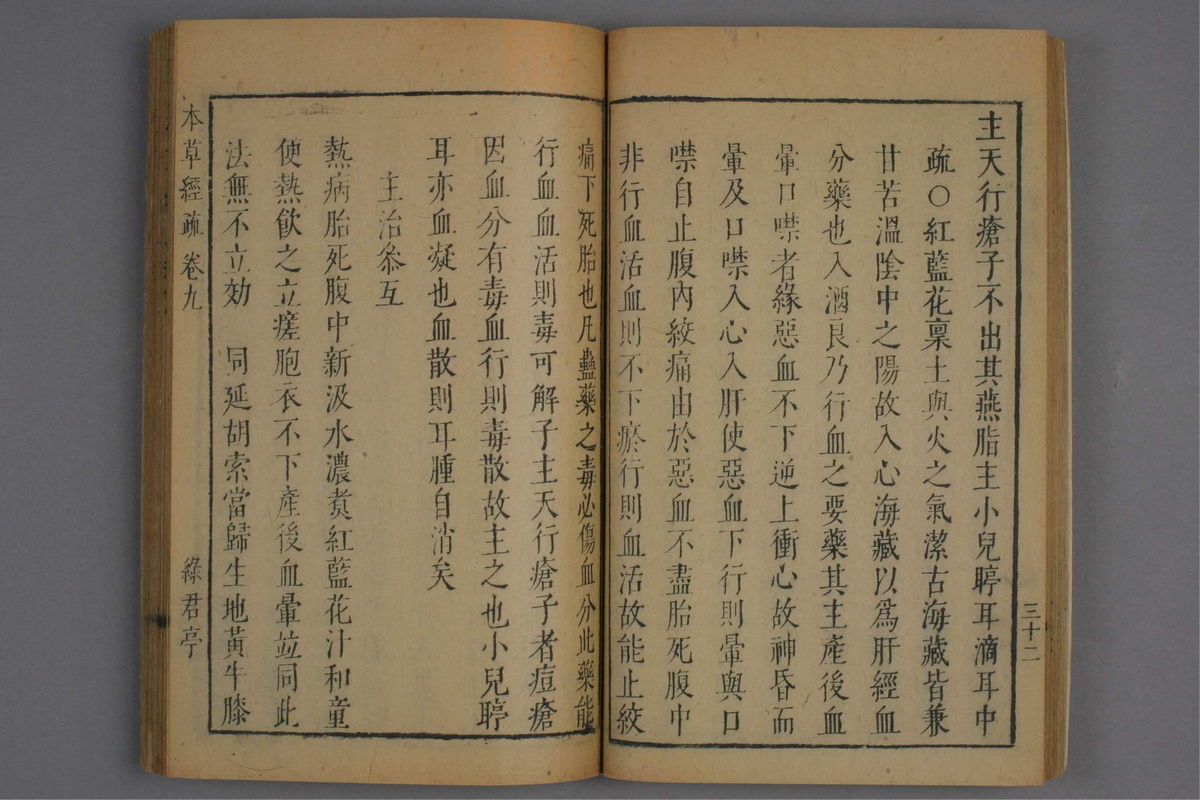 主天行瘡子不出其燕脂主小兒聤耳滴耳中
疏○紅藍花稟土與火之氣潔古海藏皆兼
甘苦溫陰中之陽故入心海藏以爲肝經血
分藥也入酒良乃行血之要藥其主產後血
暈口噤者緣惡血不下逆上衝心故神昏而
暈及口噤入心入肝使惡血下行則暈與口
噤自止腹內絞痛由於惡血不盡胎死腹中
非行血活血則不下瘀行則血活故能止絞
三十二
痛下死胎也凡蠱藥之毒必傷血分此藥能
行血血活則毒可解子主天行瘡子者痘瘡
因血分有毒血行則毒散故主之也小兒聤
耳亦血凝也血散則耳腫自消矣
主治叅互
熱病胎死腹中新汲水濃煑紅藍花汁和童
便熱飮之立瘥胞衣不下產後血暈竝同此
法無不立効　同延胡索當歸生地黃牛膝
本草經疏 卷九 綠君亭